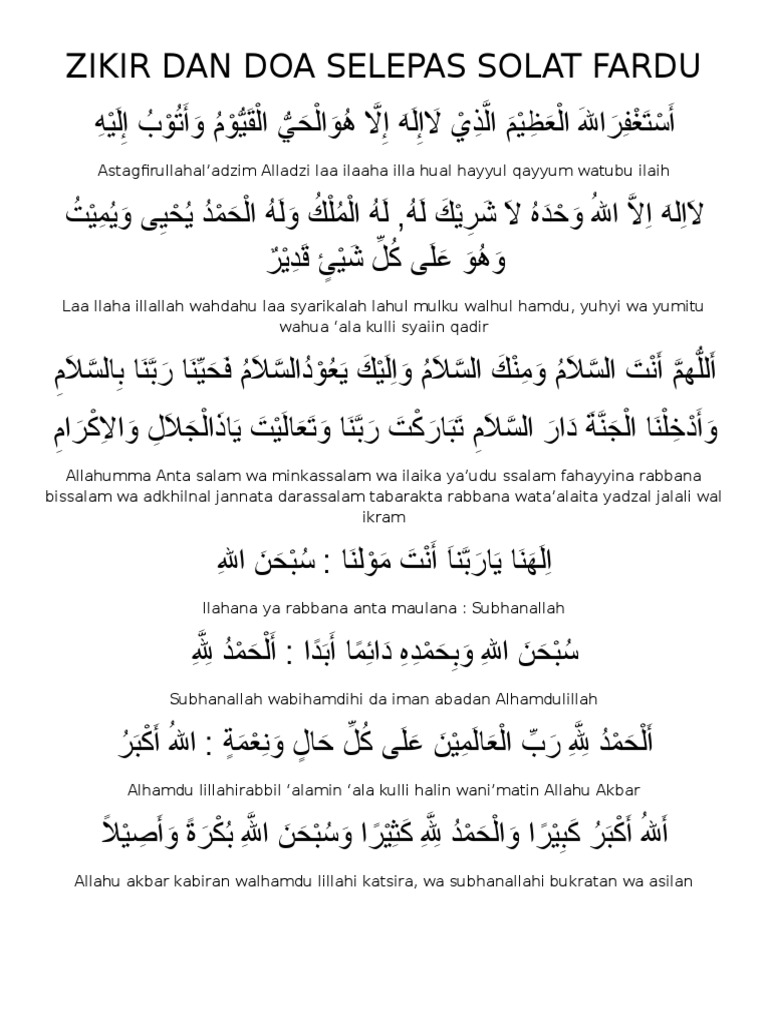 ZIKIR DAN DOA SELEPAS SOLAT FARDU
أَسْتَغْفِرَاللهَ الْعَظِيْمَ الَّذِيْ لَاإِلَهَ إِلَّا هُوَالْحَيُّ الْقَيُّوْمُ وَأَتُوْبُ إِلَيْهِ
Astagfirullahal’adzim Alladzi laa ilaaha illa hual hayyul qayyum watubu ilaih
لاَاِلهَ اِلاَّ اللهُ وَحْدَهُ لاَ شَرِيْكَ لَهُ, لَهُ الْمُلْكُ وَلَهُ الْحَمْدُ يُحْيِى وَيُمِيْتُ
وَهُوَ عَلَى كُلِّ شَيْئٍ قَدِيْرٌ
Laa Ilaha illallah wahdahu laa syarikalah lahul mulku walhul hamdu, yuhyi wa yumitu
wahua ‘ala kulli syaiin qadir
أَللُّهمَّ أَنْتَ السَّلاَمُ وَمِنْكَ السَّلاَمُ وَاِلَيْكَ يَعُوْذُالسَّلاَمُ فَحَيِّنَا رَبَّنَا بِالسَّلاَمِ
وَأَدْخِلْنَا الْجَنَّةَ دَارَ السَّلاَمِ تَبَارَكْتَ رَبَّنَا وَتَعَالَيْتَ يَاذَالْجَلاَلِ وَالاِكْرَامِ
Allahumma Anta salam wa minkassalam wa ilaika ya’udu ssalam fahayyina rabbana
bissalam wa adkhilnal jannata darassalam tabarakta rabbana wata’alaita yadzal jalali wal
ikram
اِلَهَنَا يَارَبَّنَا أَنْتَ مَوْلنَا : سُبْحَنَ اللهِ
Ilahana ya rabbana anta maulana : Subhanallah
سُبْحَنَ اللهِ وَبِحَمْدِهِ دَائِمًا أَبَدًا : أَلْحَمْدُ لِلَّهِ
Subhanallah wabihamdihi da iman abadan Alhamdulillah
أَلْحَمْدُ لِلَّهِ رَبِّ الْعَالَمِيْنَ عَلَى كُلِّ حَالٍ وَنِعْمَةٍ : اللهُ أَكْبَرُ
Alhamdu lillahirabbil ‘alamin ‘ala kulli halin wani’matin Allahu Akbar
أَللهُ أَكْبَرُ كَبِيْرًا وَالْحَمْدُ لِلَّهِ كَثِيْرًا وَسُبْحَنَ اللَّهِ بُكْرَةً وَأَصِيْلاً
Allahu akbar kabiran walhamdu lillahi katsira, wa subhanallahi bukratan wa asilan